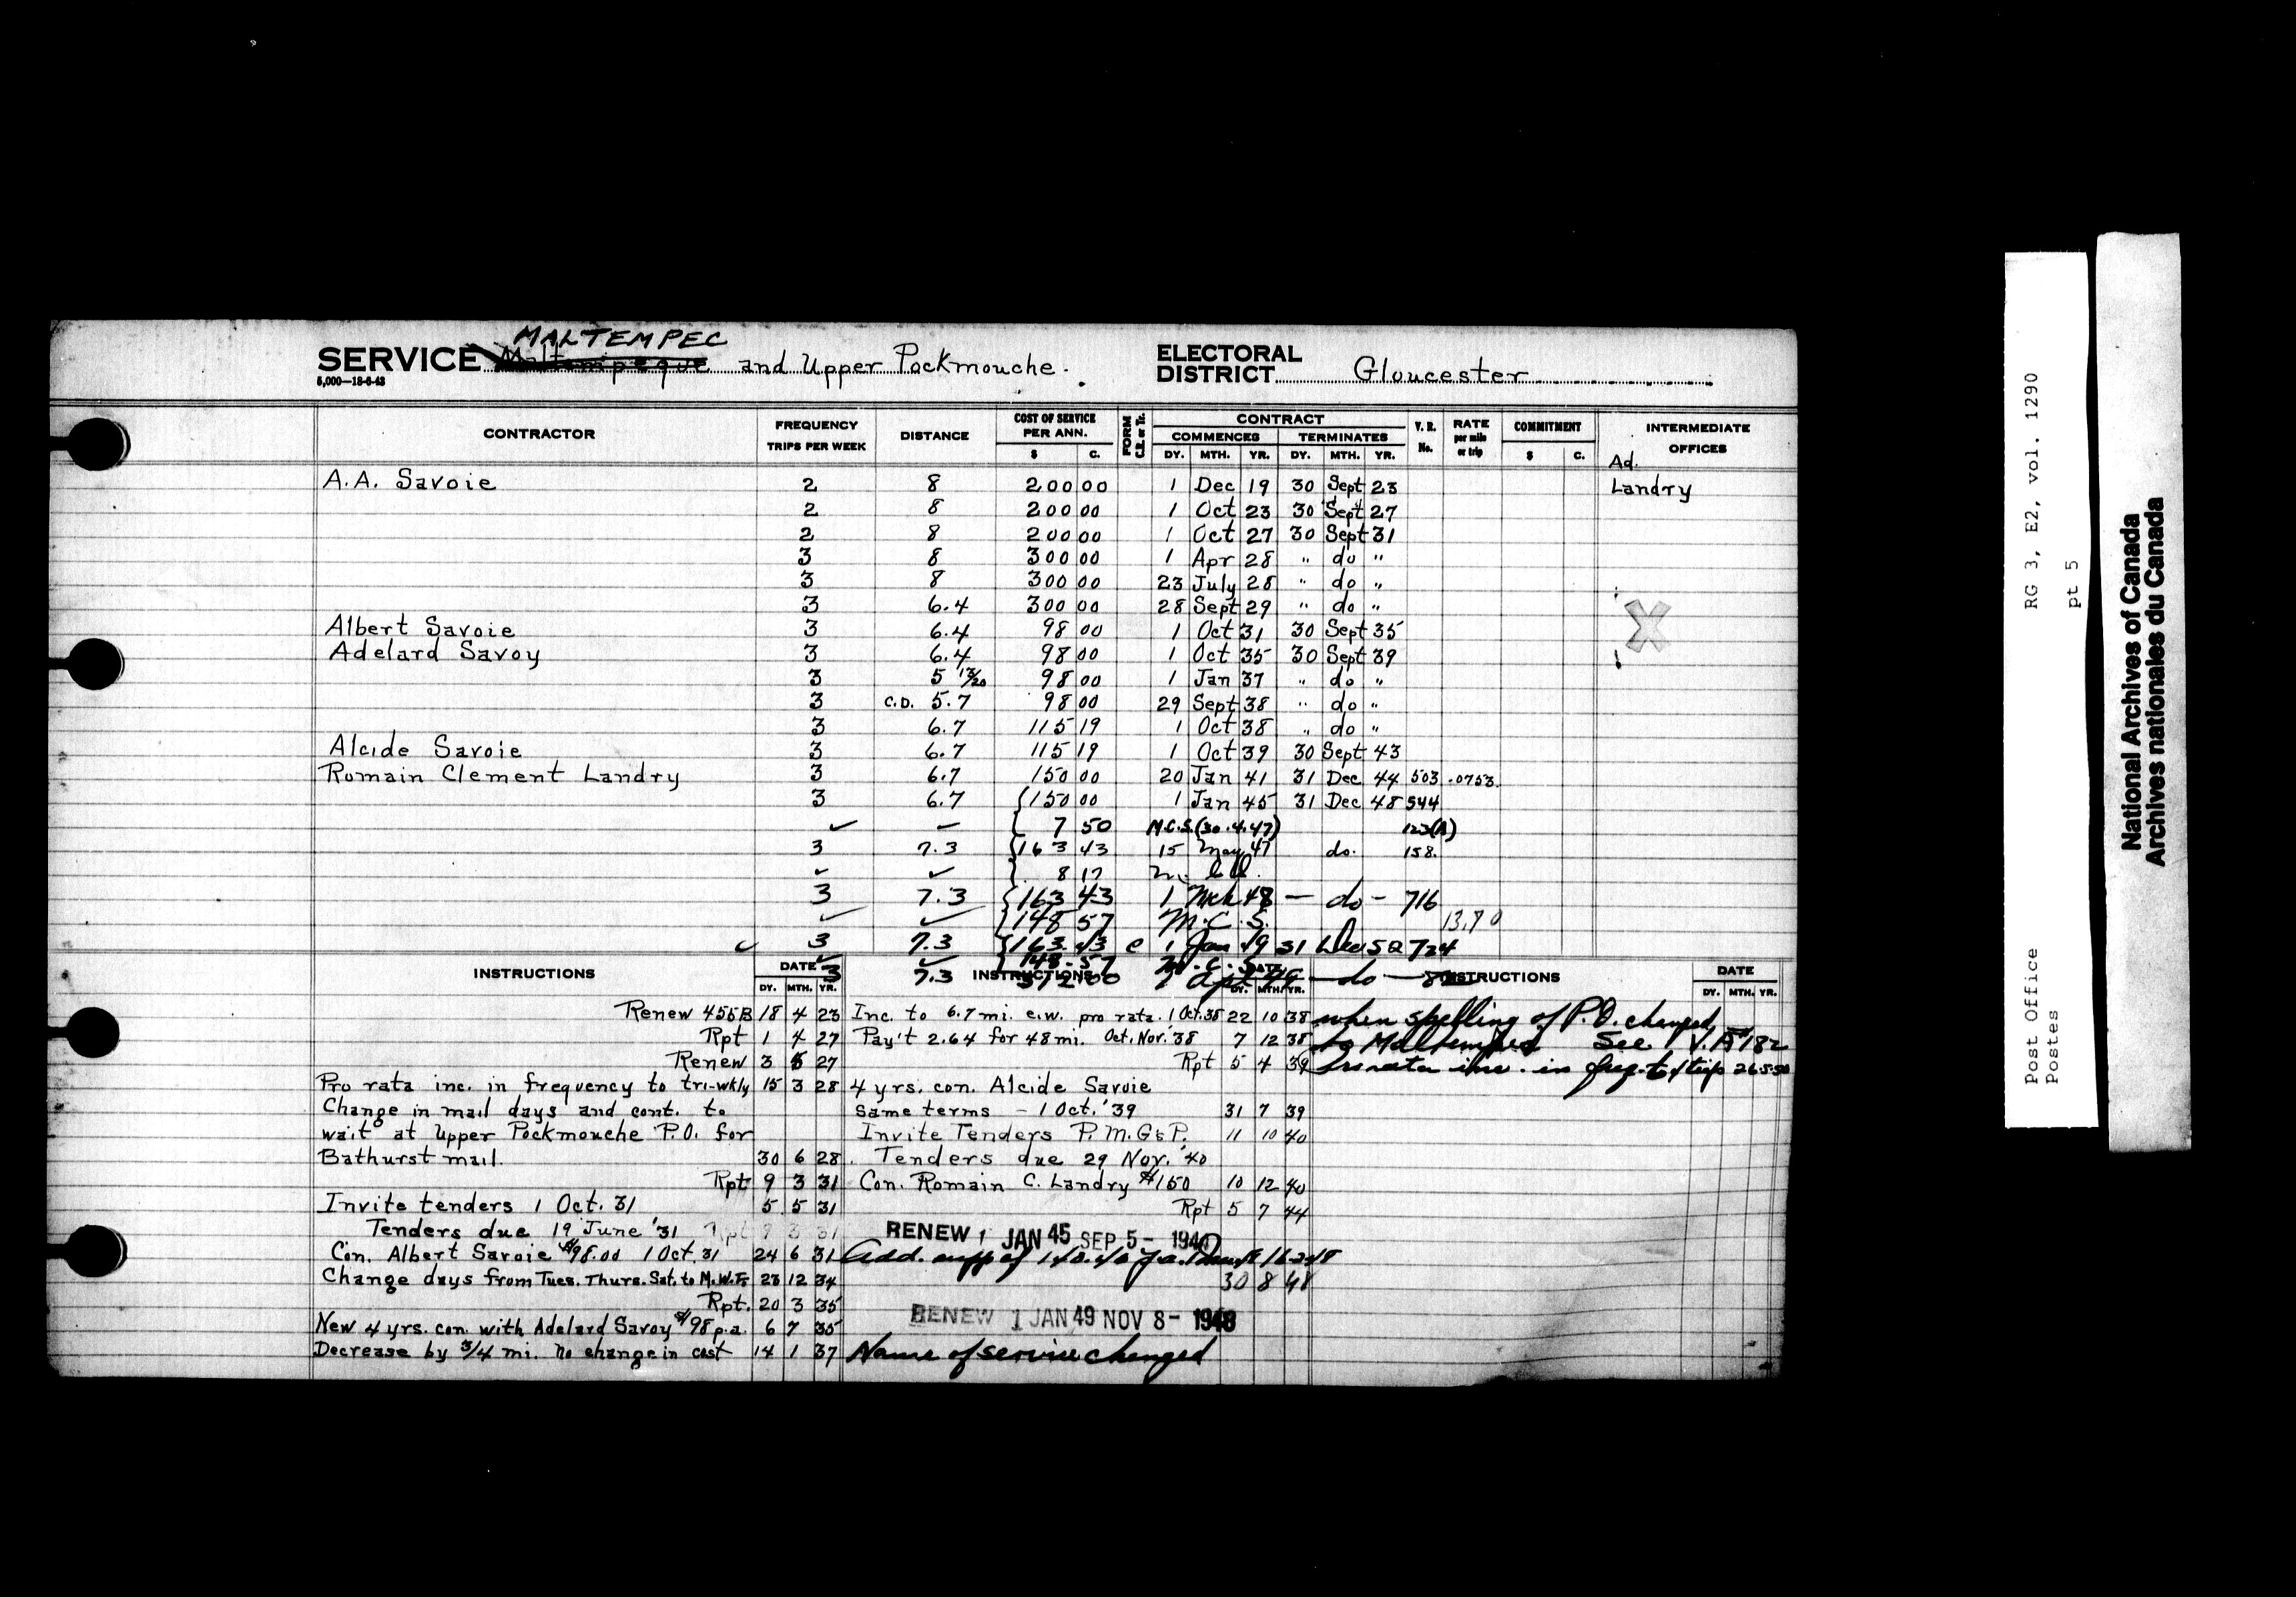 MALTEMPEC
SERVICE Maltempeque and Upper Pockmouche. ELECTORAL DISTRICT Gloucester
5,000—18-6-43
CONTRACTOR FREQUENCY TRIPS PER WEEK DISTANCE COST OF SERVICE PER ANN. $ C. FORM C.R. or Tr. CONTRACT COMMENCES DY. MTH. YR. TERMINATES DY. MTH. YR. V. R. No. RATE per mile or trip COMMITMENT $ C. INTERMEDIATE OFFICES
Ad.
A.A. Savoie 2 8 200 00 1 Dec 19 30 Sept 23 Landry
2 8 200 00 1 Oct 23 30 Sept 27
2 8 200 00 1 Oct 27 30 Sept 31
3 8 300 00 1 Apr 28 " do "
3 8 300 00 23 July 28 " do "
3 6.4 300 00 28 Sept 29 " do "
Albert Savoie 3 6.4 98 00 1 Oct 31 30 Sept 35
Adelard Savoy 3 6.4 98 00 1 Oct 35 30 Sept 39
3 5 13/20 98 00 1 Jan 37 " do "
3 C.D. 5.7 98 00 29 Sept 38 " do "
3 6.7 115 19 1 Oct 38 " do "
Alcide Savoie 3 6.7 115 19 1 Oct 39 30 Sept 43
Romain Clement Landry 3 6.7 150 00 20 Jan 41 31 Dec 44 503 .0753
3 6.7 150 00 1 Jan 45 31 Dec 48 544
7 50 M.C.S. (30.4.47) 123(A)
3 7.3 163 43 15 May 47 do. 158.
8 17
3 7.3 163 43 1 Mch 48 — do — 716
148 57 M.C.S. 13.70
3 7.3 163 43 C 1 Jan 49 31 Dec 52 724
148.57 M.C.S.
3 7.3 312.00 1 Apr 49 — do —
INSTRUCTIONS DATE DY. MTH. YR. INSTRUCTIONS DATE DY. MTH. YR. INSTRUCTIONS DATE DY. MTH. YR.
Renew 455B 18 4 23
Rpt 1 4 27
Renew 3 5 27
Pro rata inc. in frequency to tri-wkly 15 3 28
Change in mail days and cont. to
wait at Upper Pockmouche P.O. for
Bathurst mail. 30 6 28
Rpt 9 3 31
Invite tenders 1 Oct. 31 5 5 31
Tenders due 19 June '31 Rpt 9 3 31
Con. Albert Savoie $98.00 1 Oct. 31 24 6 31
Change days from Tues. Thurs. Sat. to M.W.F. 23 12 34
Rpt. 20 3 35
New 4 yrs. con. with Adelard Savoy $98 p.a. 6 7 35
Decrease by 3/4 mi. no change in cost 14 1 37
Inc. to 6.7 mi. e.w. pro rata. 1 Oct. 38 22 10 38
Pay't 2.64 for 48 mi. Oct. Nov. '38 7 12 38
Rpt 5 4 39
4 yrs. con. Alcide Savoie
same terms - 1 Oct. '39 31 7 39
Invite Tenders P.M.G&P. 11 10 40
Tenders due 29 Nov. '40
Con. Romain C. Landry $150 10 12 40
Rpt 5 7 44
RENEW 1 JAN 45 SEP 5 - 194
Add. supp of
30 8 48
RENEW 1 JAN 49 NOV 8 - 1948
Name of service changed
when spelling of P.O. changed
to Maltempec See 182
Pro rata inc. in freq. to trip 26.5.50
Post Office RG 3, E2, vol. 1290
Postes pt 5
National Archives of Canada
Archives nationales du Canada